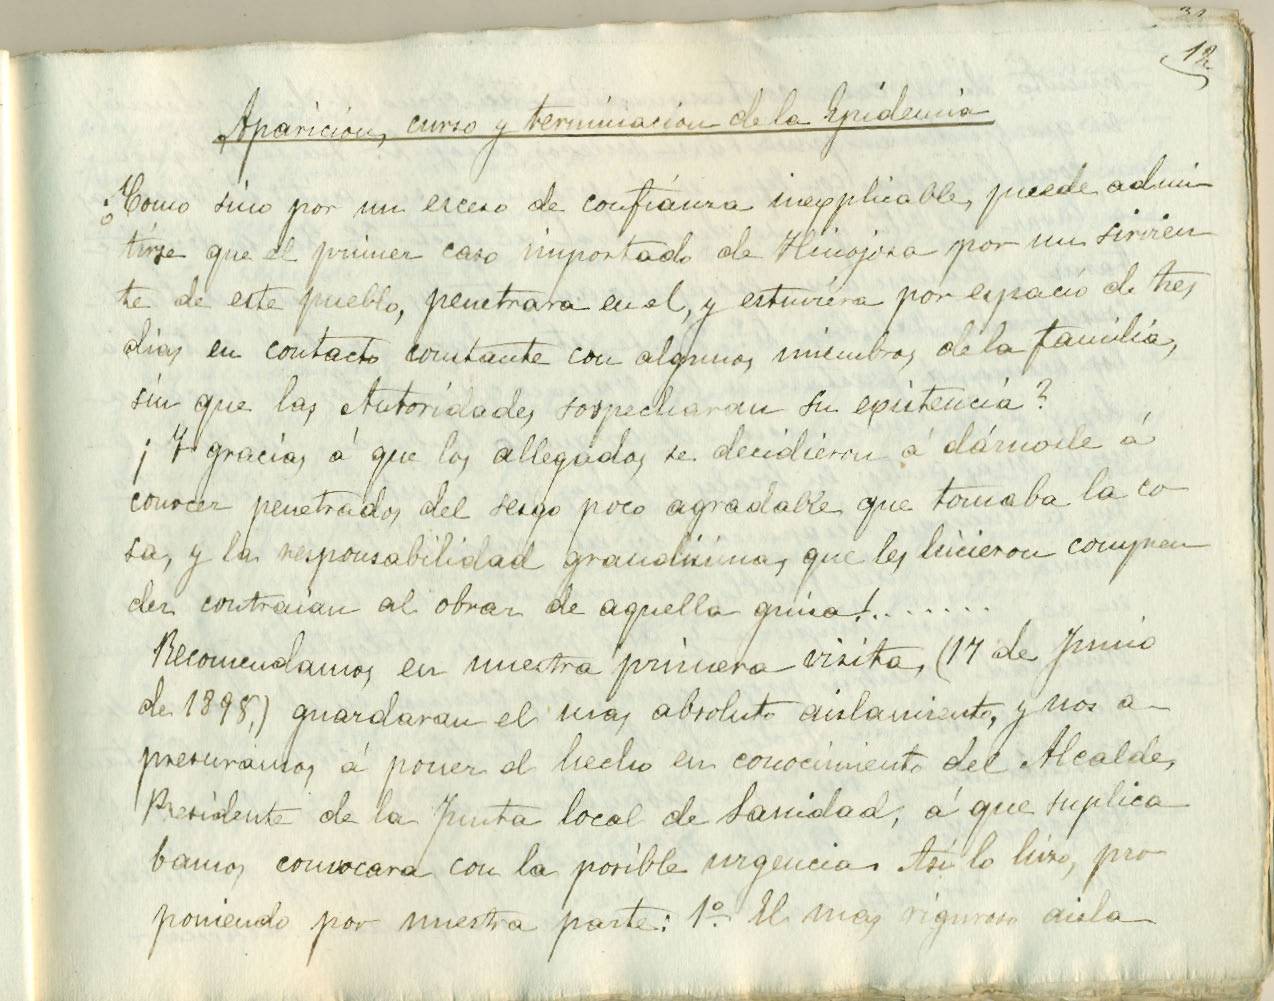 12
Aparicion, curso y terminacion de la Epidemia
¿Como sino por un exceso de confianza inexplicable, puede admi
tirse que el primer caso importado de Hinojosa por un sirvien
te de este pueblo, penetrara en el, y estuviera por espacio de tres
dias en contacto constante con algunos miembros de la familia,
sin que las Autoridades sospecharan su existencia?
¡Y gracias á que los allegados se decidieron á dárnosle á
conocer penetrados del sesgo poco agradable que tomaba la co
sa, y la responsabilidad grandisima, que les hicieron compren
der contraian al obrar de aquella guisa!.......
Recomendamos en nuestra primera visita, (17 de Junio
de 1898,) guardaran el mas absoluto aislamiento, y nos a-
presuramos á poner el hecho en conocimiento del Alcalde,
Presidente de la Junta local de Sanidad, á que suplica
bamos convocara con la posible urgencia. Asi lo hizo, pro
poniendo por nuestra parte: 1º. El mas riguroso aisla